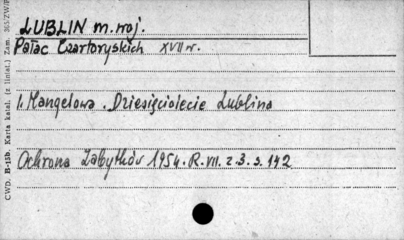 LUBLIN m. woj.
Pałac Czartoryskich XVII w.
I. Mangelowa. Dziesięciolecie Lublina
Ochrona Zabytków 1954. R. VII. z. 3. s. 142
CWD. B-15b. Karta katal. (z liniat.) Zam.